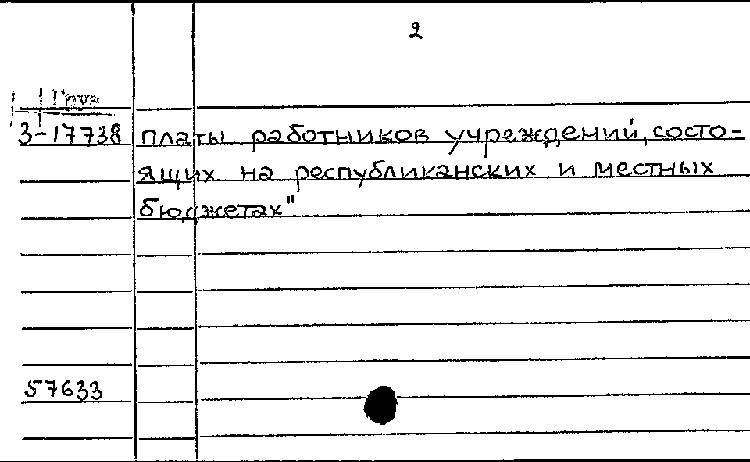 2
3-17738 платы работников учреждений, состо-
ящих на республиканских и местных
бюджетах"
57633